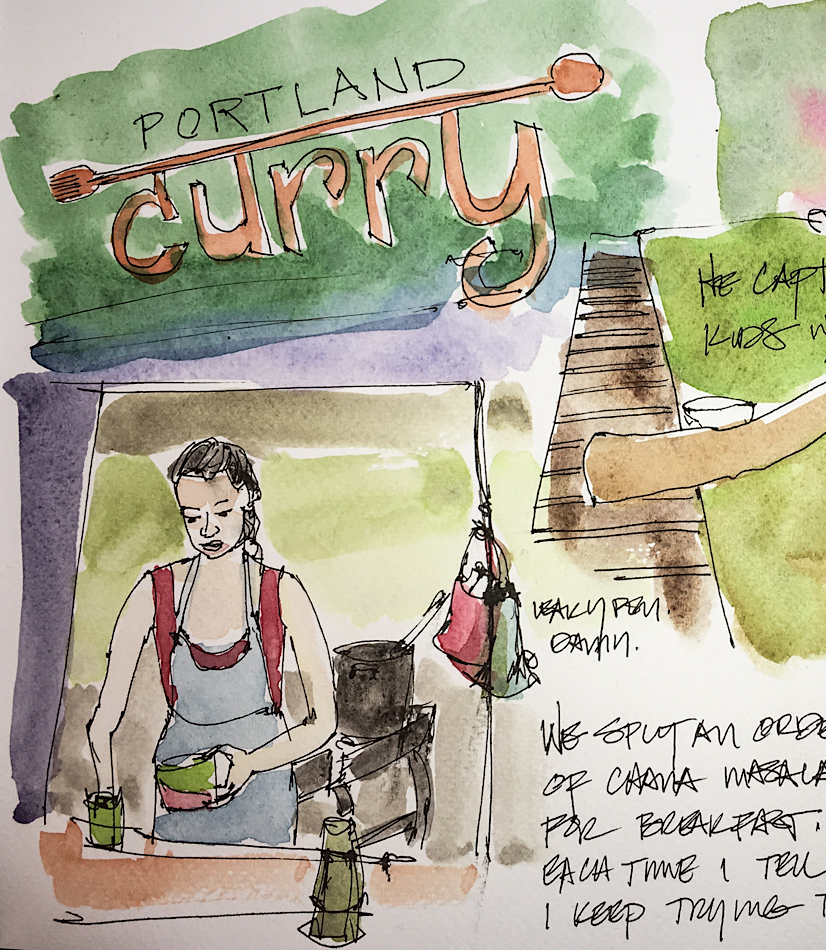 PORTLAND
curry
HE CAPT
KIDS W
LEAKY PEN.
DAMN.
WE SPLIT AN ORDE
OF CHANA MASALA
FOR BREAKFAST.
EACH TIME I TELL
I KEEP TRYING T